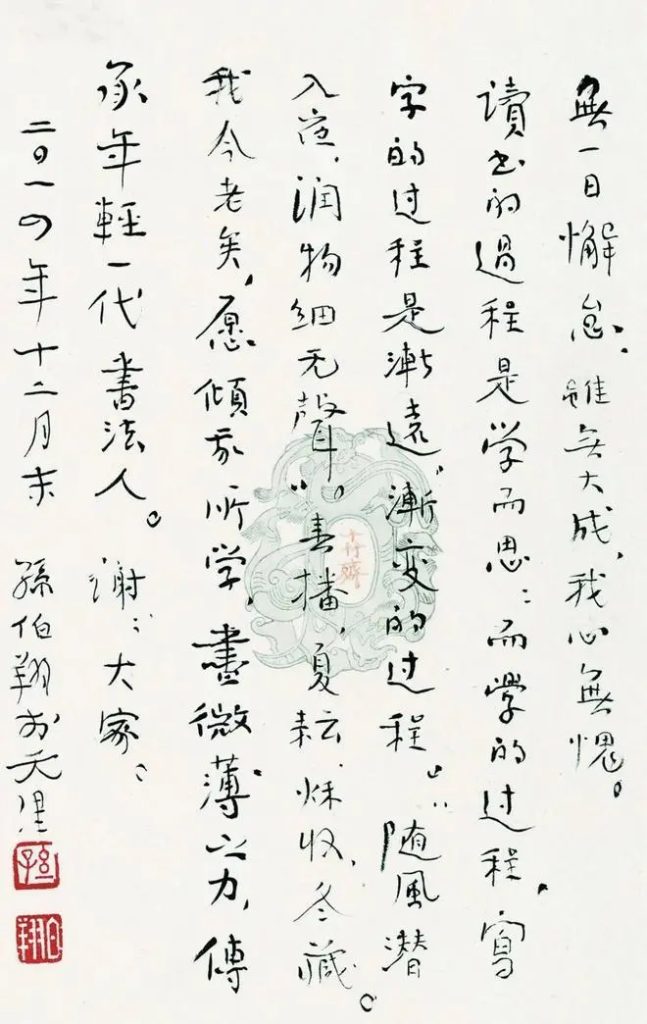 無一日懈怠，雖無大成，我心無愧。
讀书的過程是学而思：而學的过程，寫
字的过程是漸遠，漸变的过程。“随風潜
入夜，润物细无聲”。春播，夏耘，秌收，冬藏。
我今老矣，愿傾我所学，盡微薄之力，傳
承年輕一代書法人。謝：大家：
二〇一四年十二月末 孫伯翔於天津
孫
伯翔
十竹齋